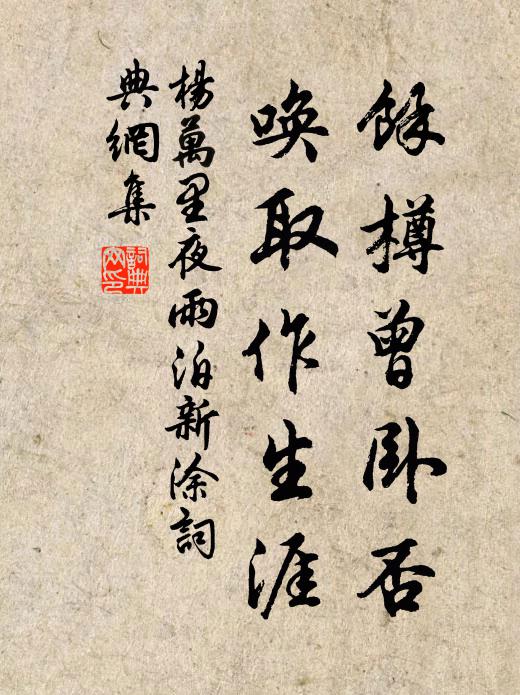 餘樽曾卧否
喚取作生涯
楊萬里夜雨泊新涂詞
典網集
詞典網印